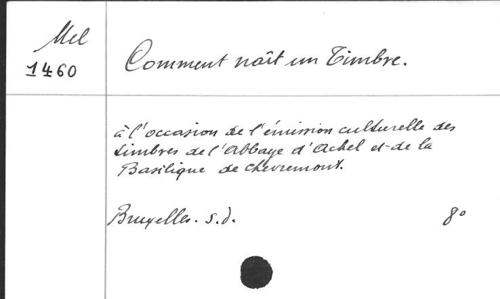 Mel
1460
Comment naît un Timbre.
à l'occasion de l'émission culturelle des
timbres de l'Abbaye d'Achel et de la
Basilique de Chevremont.
Bruxelles. s.d. 8º